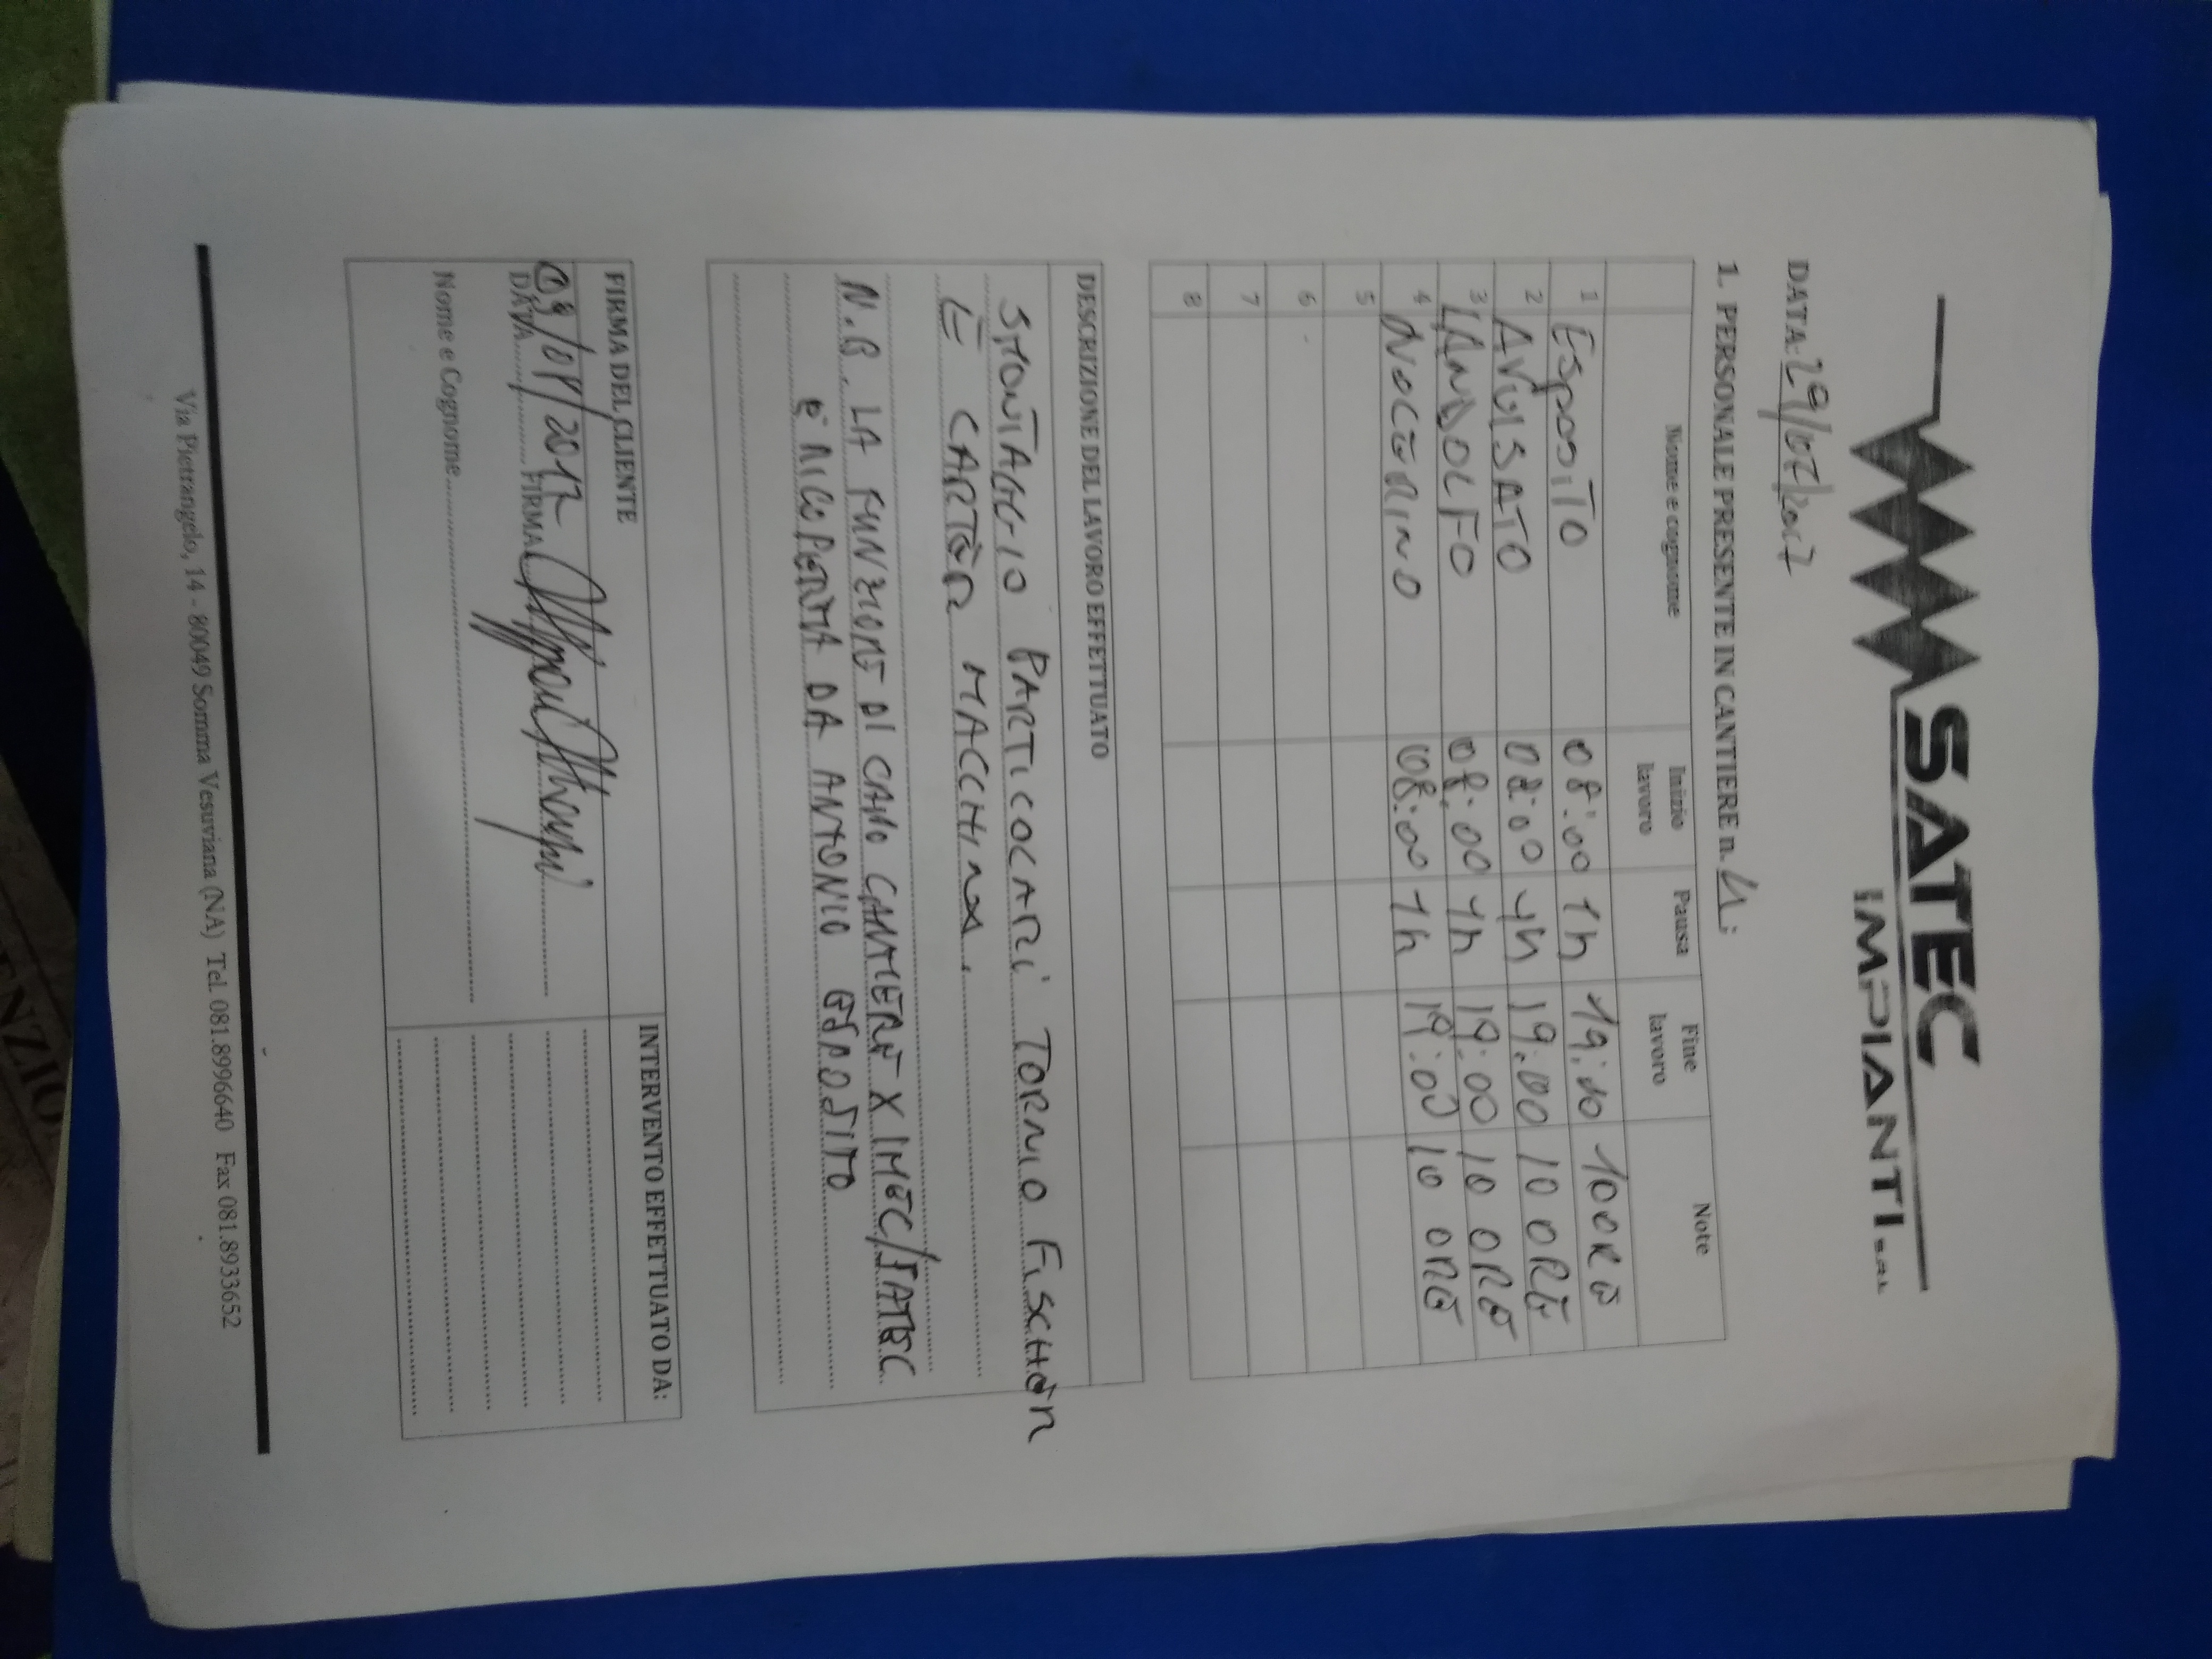 SATEC
IMPIANTI S.R.L.
DATA: 29/07/2017
1. PERSONALE PRESENTE IN CANTIERE n. 4:
Nome e cognome Inizio lavoro Pausa Fine lavoro Note
1 ESPOSITO 08:00 1h 19:00 10 ORE
2 AVVISATO 08:00 1h 19:00 10 ORE
3 LANDOLFO 08:00 1h 19:00 10 ORE
4 NOCERINO 08:00 1h 19:00 10 ORE
5
6
7
8
DESCRIZIONE DEL LAVORO EFFETTUATO
SMONTAGGIO PARTICOLARI TORNIO FISCHER
E CARTER MACCHINA.
N.B. LA FUNZIONE DI CAPO CANTIERE X IMEC/SATEC
È RICOPERTA DA ANTONIO ESPOSITO
FIRMA DEL CLIENTE INTERVENTO EFFETTUATO DA:
DATA 03/08/2017 FIRMA
Nome e Cognome
Via Pietrangelo, 14 - 80049 Somma Vesuviana (NA) Tel. 081.8996640 Fax 081.8933652